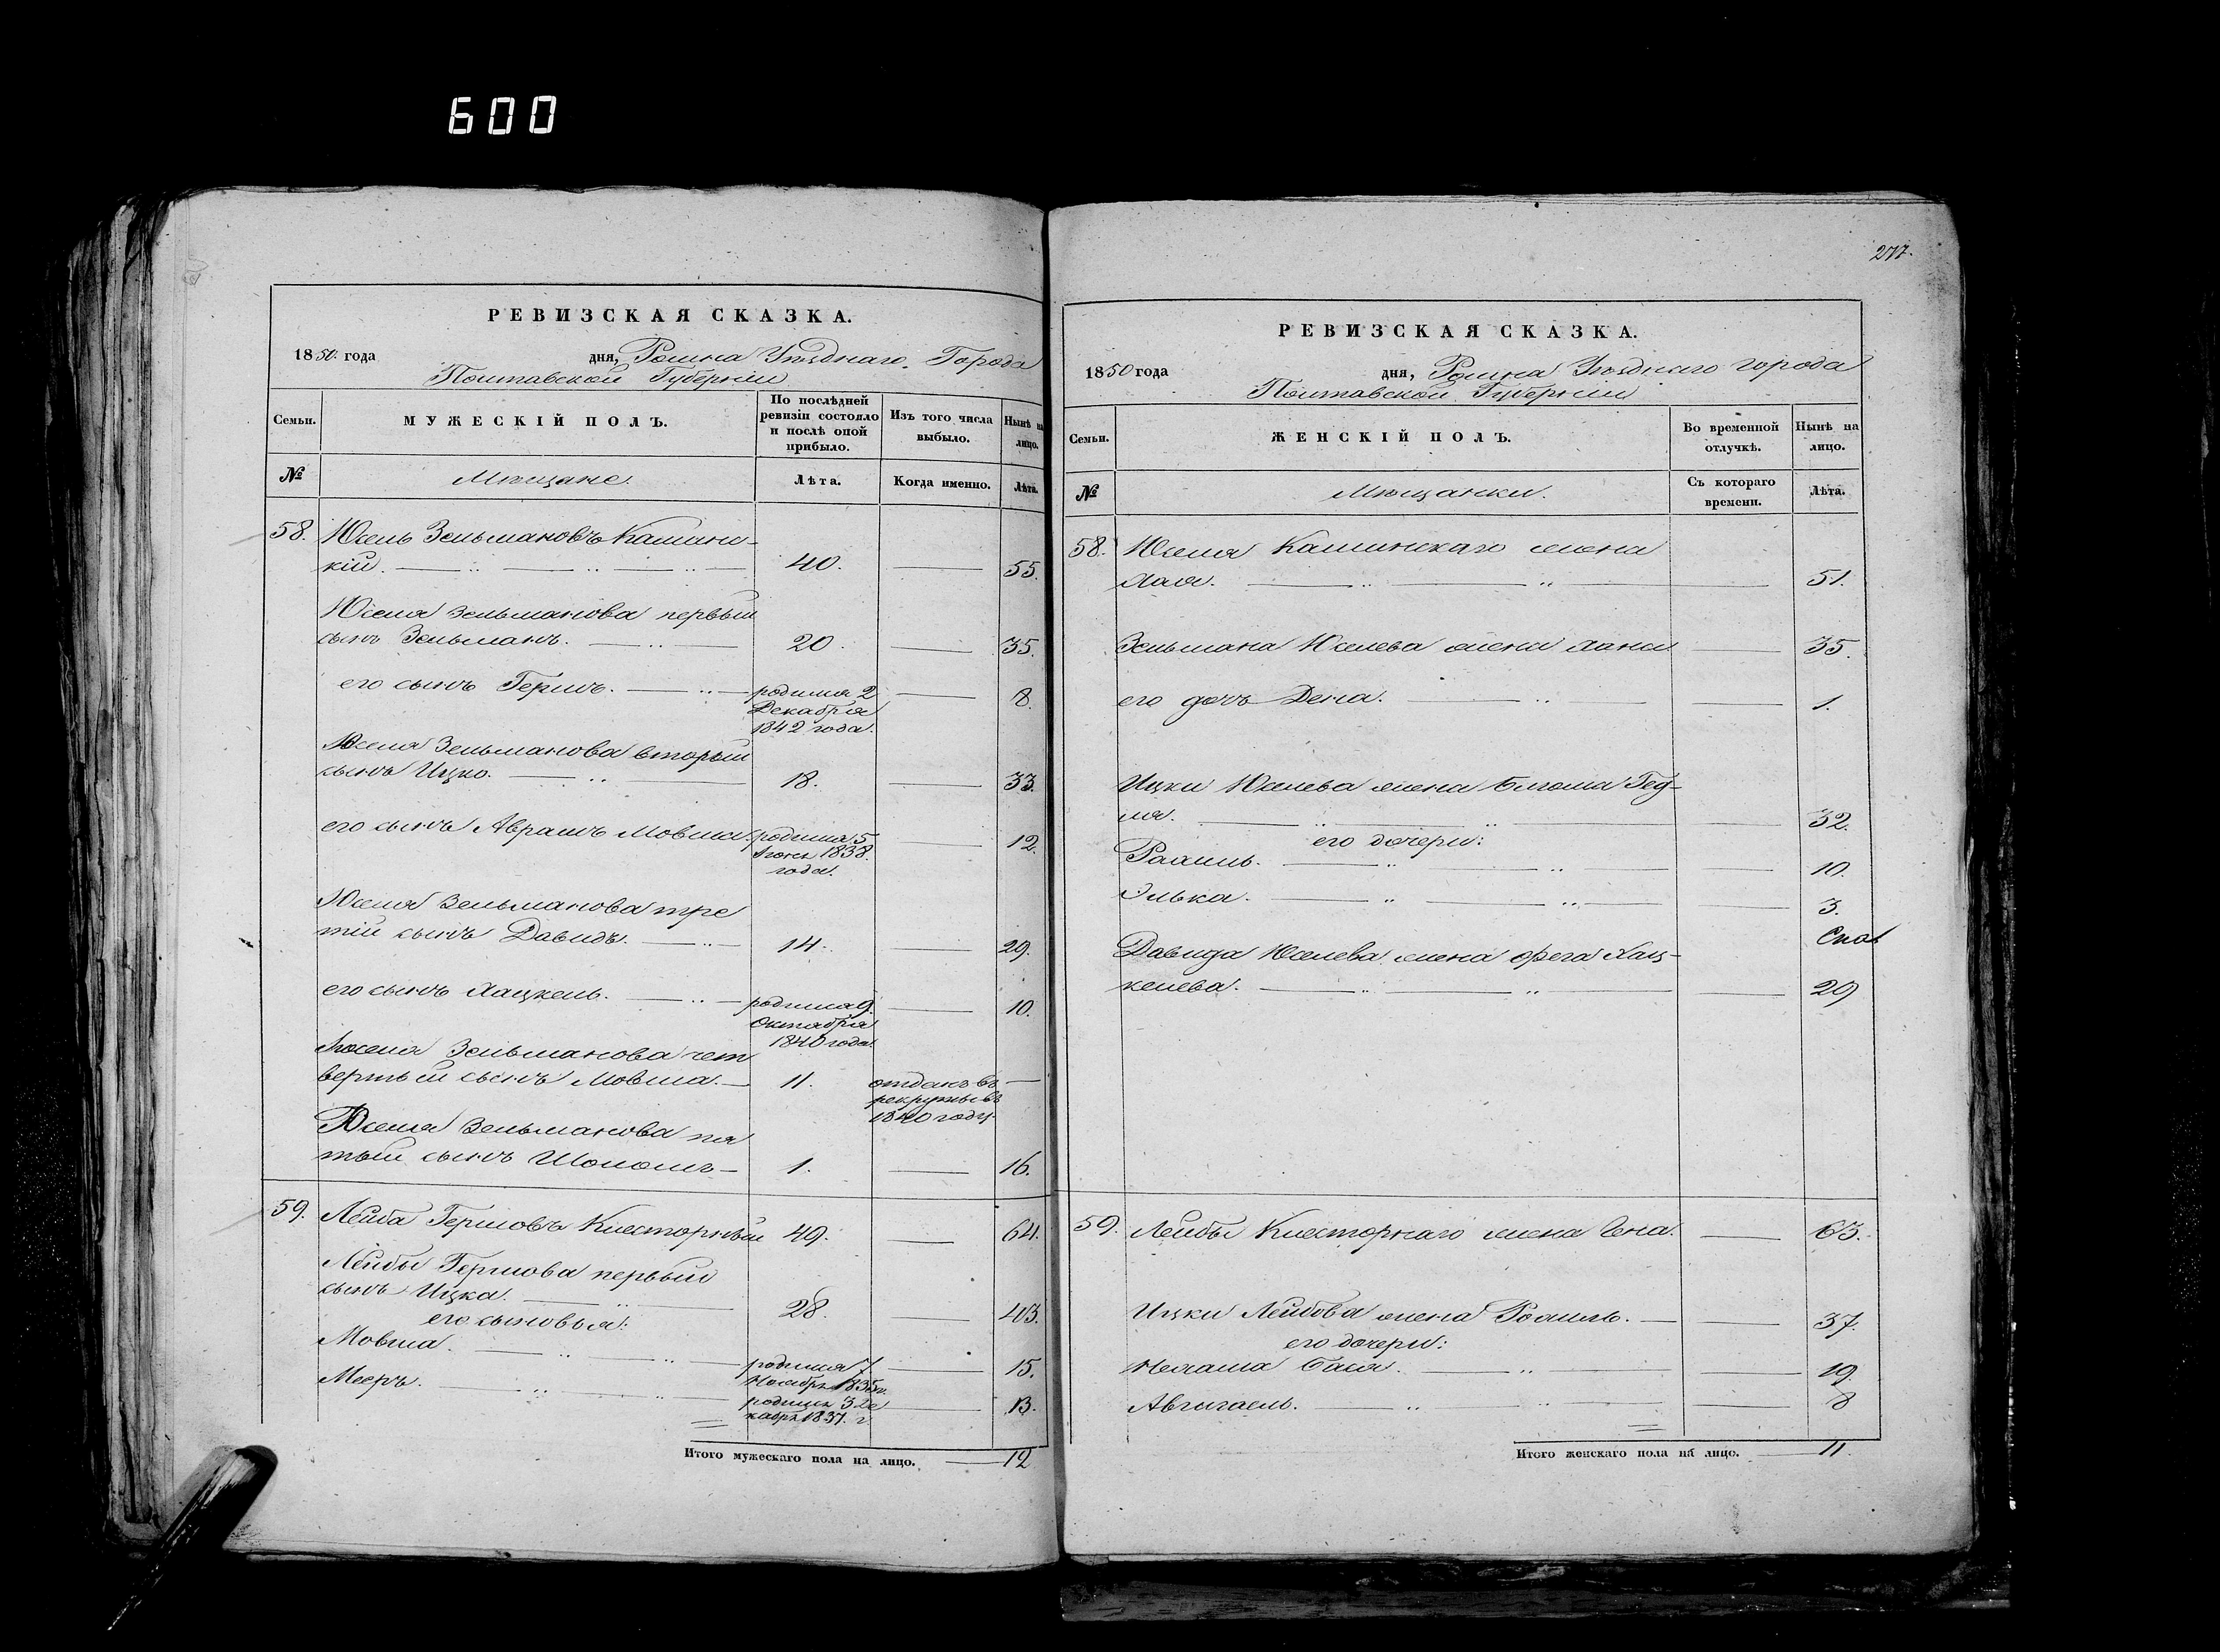 600
РЕВИЗСКАЯ СКАЗКА.
1850 года дня, Ромна Уѣзднаго Города
Полтавской Губерніи
Семьи.
МУЖЕСКІЙ ПОЛЪ.
По послѣдней ревизіи состояло и послѣ оной прибыло.
Изъ того числа выбыло.
Нынѣ на лицо.
№
Мѣщане.
Лѣта.
Когда именно.
Лѣта.
58. Юсель Зельмановъ Кашин-
кій. 40. 55.
Юселя Зельманова первый
сынъ Зельманъ. 20. 35.
его сынъ Гершъ. родился 2 8.
Декабря
1842 года.
Юселя Зельманова вторый
сынъ Ицко. 18. 33.
его сынъ Абрамъ Мовша. родился 5 12.
Іюня 1838.
года.
Юселя Зельманова тре
тій сынъ Давидъ. 14. 29.
его сынъ Хацкель. родился 9 10.
Октября
1840 года.
Юселя Зельманова чет
вертый сынъ Мовша. 11. отданъ въ
рекруты въ
1840 году.
Юселя Зельманова пя
тый сынъ Шоломъ 1. 16.
59. Лейба Гершовъ Клисторный 49. 64.
Лейбы Гершова первый
сынъ Ицка. 28. 43.
его сыновья:
Мовша. родился 7 15.
Ноября 1835 г.
Мееръ. родился 3 Де 13.
кабря 1837. г.
Итого мужескаго пола на лицо. 12
277.
РЕВИЗСКАЯ СКАЗКА.
1850 года дня, Ромна Уѣзднаго города
Полтавской Губерніи
Семьи.
ЖЕНСКІЙ ПОЛЪ.
Во временной отлучкѣ.
Нынѣ на лицо.
№
Мѣщанки.
Съ котораго времени.
Лѣта.
58. Юселя Кашинскаго жена
Хая. 51.
Зельмана Юселева жена Хана 35.
его дочь Дена. 1.
Ицки Юселева жена Блюма Гед-
ля. 32.
его дочери:
Рахиль. 10.
Элька. 3.
Давида Юселева жена Фрега Хац-
келева. 29
59. Лейбы Клисторнаго жена Гена. 63.
Ицки Лейбова жена Рохиль. 37.
его дочери:
Нехама Бася. 19.
Авыгаель. 8
Итого женскаго пола на лицо. 11.